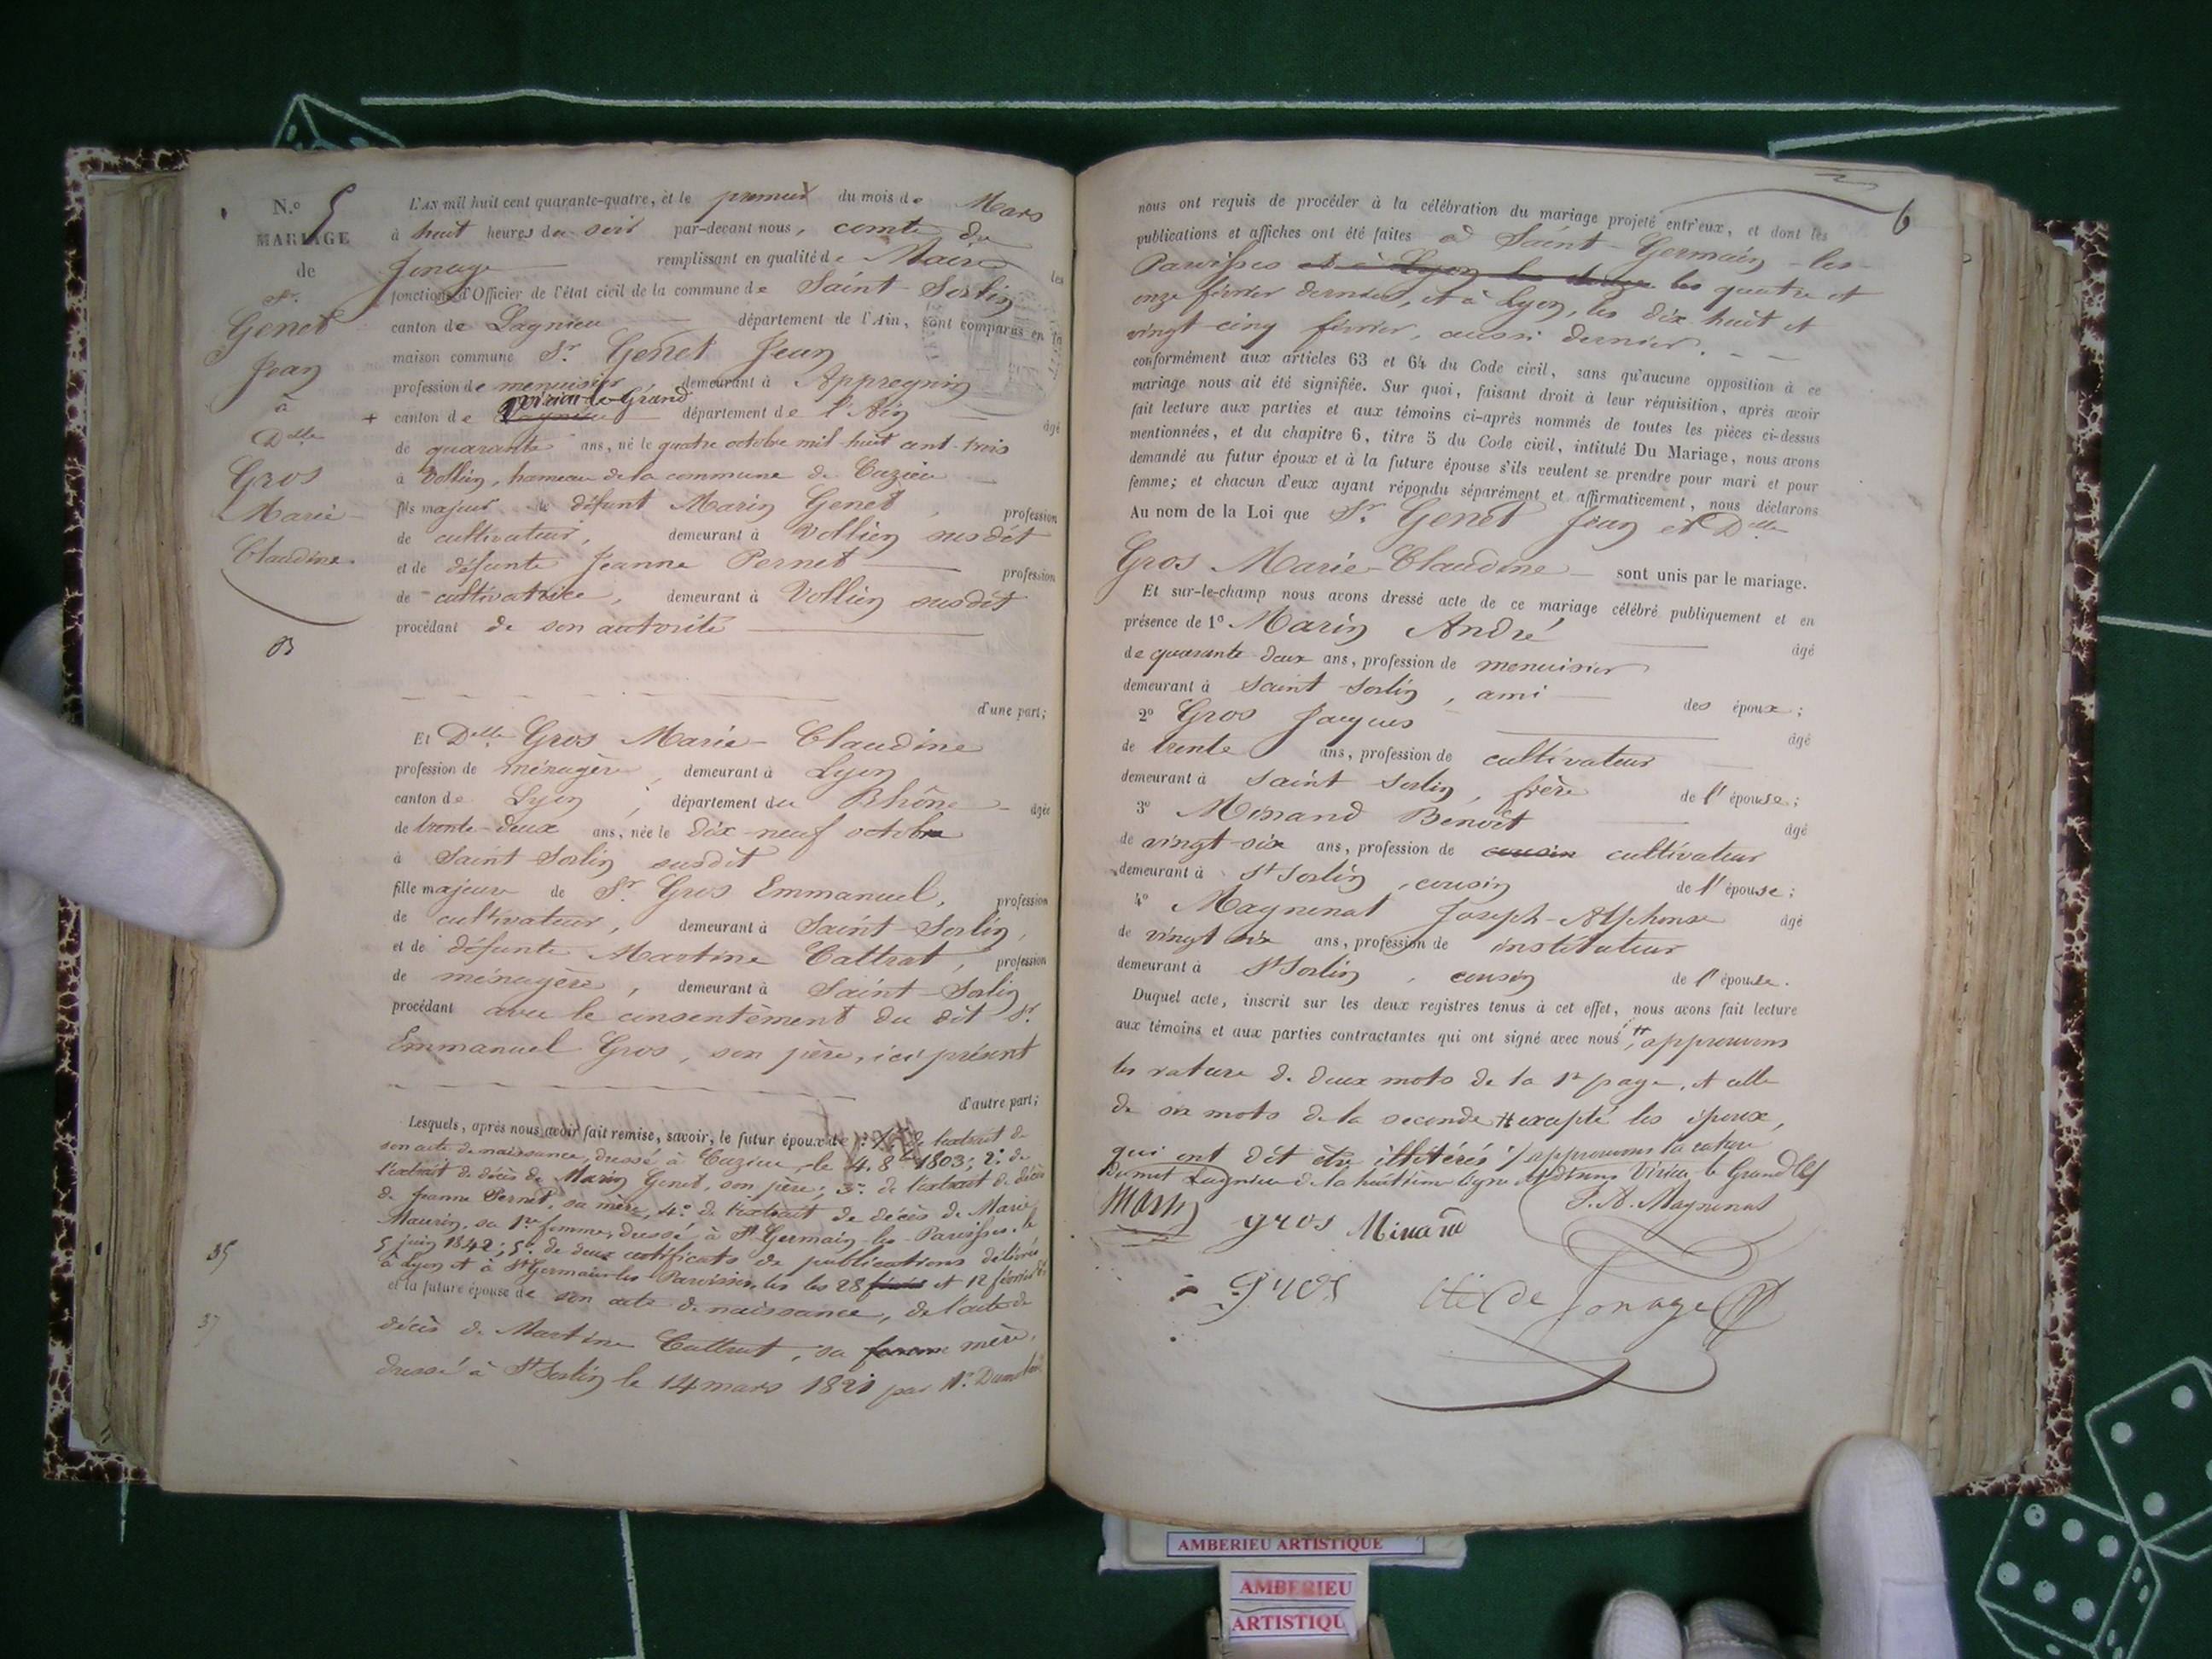 N.º 5
MARIAGE
de
Sr.
Genet
Jean
à
Delle
Gros
Marie
Claudine.
B
L'AN mil huit cent quarante-quatre, et le premier du mois de Mars
à huit heures du soir par-devant nous, comte de
Jonage remplissant en qualité de Maire les
fonctions d'Officier de l'état civil de la commune de Saint-Sorlin
canton de Lagnieu département de l'Ain, sont comparus en la
maison commune Sr. Genet Jean
profession de menuisier demeurant à Appregnin
+ canton de Virieu-le-Grand département de l'Ain âgé
de quarante ans, né le quatre octobre mil huit cent trois
à Vollien, hameau de la commune de Cuzieu
fils majeur de défunt Marin Genet, profession
de cultivateur, demeurant à Vollien susdit
et de défunte Jeanne Pernet profession
de cultivatrice, demeurant à Vollien susdit
procédant de son autorité
d'une part;
Et Delle Gros Marie-Claudine
profession de ménagère, demeurant à Lyon
canton de Lyon, département du Rhône âgée
de trente-deux ans, née le dix-neuf octobre
à Saint-Sorlin susdit
fille majeure de Sr. Gros Emmanuel, profession
de cultivateur, demeurant à Saint-Sorlin,
et de défunte Martine Cattrat, profession
de ménagère, demeurant à Saint-Sorlin
procédant avec le consentement du dit Sr.
Emmanuel Gros, son père, ici présent
d'autre part;
Lesquels, après nous avoir fait remise, savoir, le futur époux de l'extrait de
son acte de naissance, dressé à Cuzieu, le 4. 8bre 1803; 2.º de
l'extrait de décès de Marin Genet, son père; 3.º de l'extrait de décès
de Jeanne Pernet, sa mère, 4.º de l'extrait de décès de Marie
Maurin, sa 1re femme, dressé à St Germain-les-Paroisses, le
5 juin 1842; 5.º de deux certificats de publications délivrés
à Lyon et à St Germain-les-Paroisses, les 28 et 12 février
et la future épouse de son acte de naissance, de l'acte de
décès de Martine Cattrat, sa femme mère,
dressé à St Sorlin le 14 mars 1821 par
35
37
6
nous ont requis de procéder à la célébration du mariage projeté entr'eux, et dont les
publications et affiches ont été faites à Saint-Germain-les-
Paroisses et à Lyon les les quatre et
onze février dernier, et à Lyon, les dix-huit et
vingt-cinq février, aussi dernier.
conformément aux articles 63 et 64 du Code civil, sans qu'aucune opposition à ce
mariage nous ait été signifiée. Sur quoi, faisant droit à leur réquisition, après avoir
fait lecture aux parties et aux témoins ci-après nommés de toutes les pièces ci-dessus
mentionnées, et du chapitre 6, titre 5 du Code civil, intitulé Du Mariage, nous avons
demandé au futur époux et à la future épouse s'ils veulent se prendre pour mari et pour
femme; et chacun d'eux ayant répondu séparément et affirmativement, nous déclarons
Au nom de la Loi que Sr. Genet Jean et Delle
Gros Marie-Claudine sont unis par le mariage.
Et sur-le-champ nous avons dressé acte de ce mariage célébré publiquement et en
présence de 1º Marin André âgé
de quarante-deux ans, profession de menuisier
demeurant à Saint Sorlin, ami des époux;
2º Gros Jacques âgé
de trente ans, profession de cultivateur
demeurant à Saint Sorlin, frère de l'épouse;
3º Minand Benoît âgé
de vingt-six ans, profession de cousin cultivateur
demeurant à St Sorlin, cousin de l'épouse;
4º Magnenat Joseph-Alphonse âgé
de vingt six ans, profession de instituteur
demeurant à St Sorlin, cousin de l'épouse.
Duquel acte, inscrit sur les deux registres tenus à cet effet, nous avons fait lecture
aux témoins et aux parties contractantes qui ont signé avec nous, # approuvons
les rature de deux mots de la 1re page, et celle
de six mots de la seconde # excepté les époux,
qui ont dit être illitérés / approuvons la rature
du mot Lagnieu de la huitième ligne et disons Virieu-le-Grand
Marin gros Minand J. A. Magnenat
gros Cte de Jonage
AMBERIEU ARTISTIQUE
AMBERIEU
ARTISTIQU